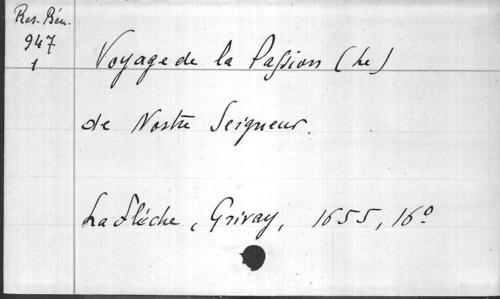 Res. Bén.
947
1
Voyage de la Passion (Le)
de Nostre Seigneur.
La Flèche, Grivay, 1655, 16º